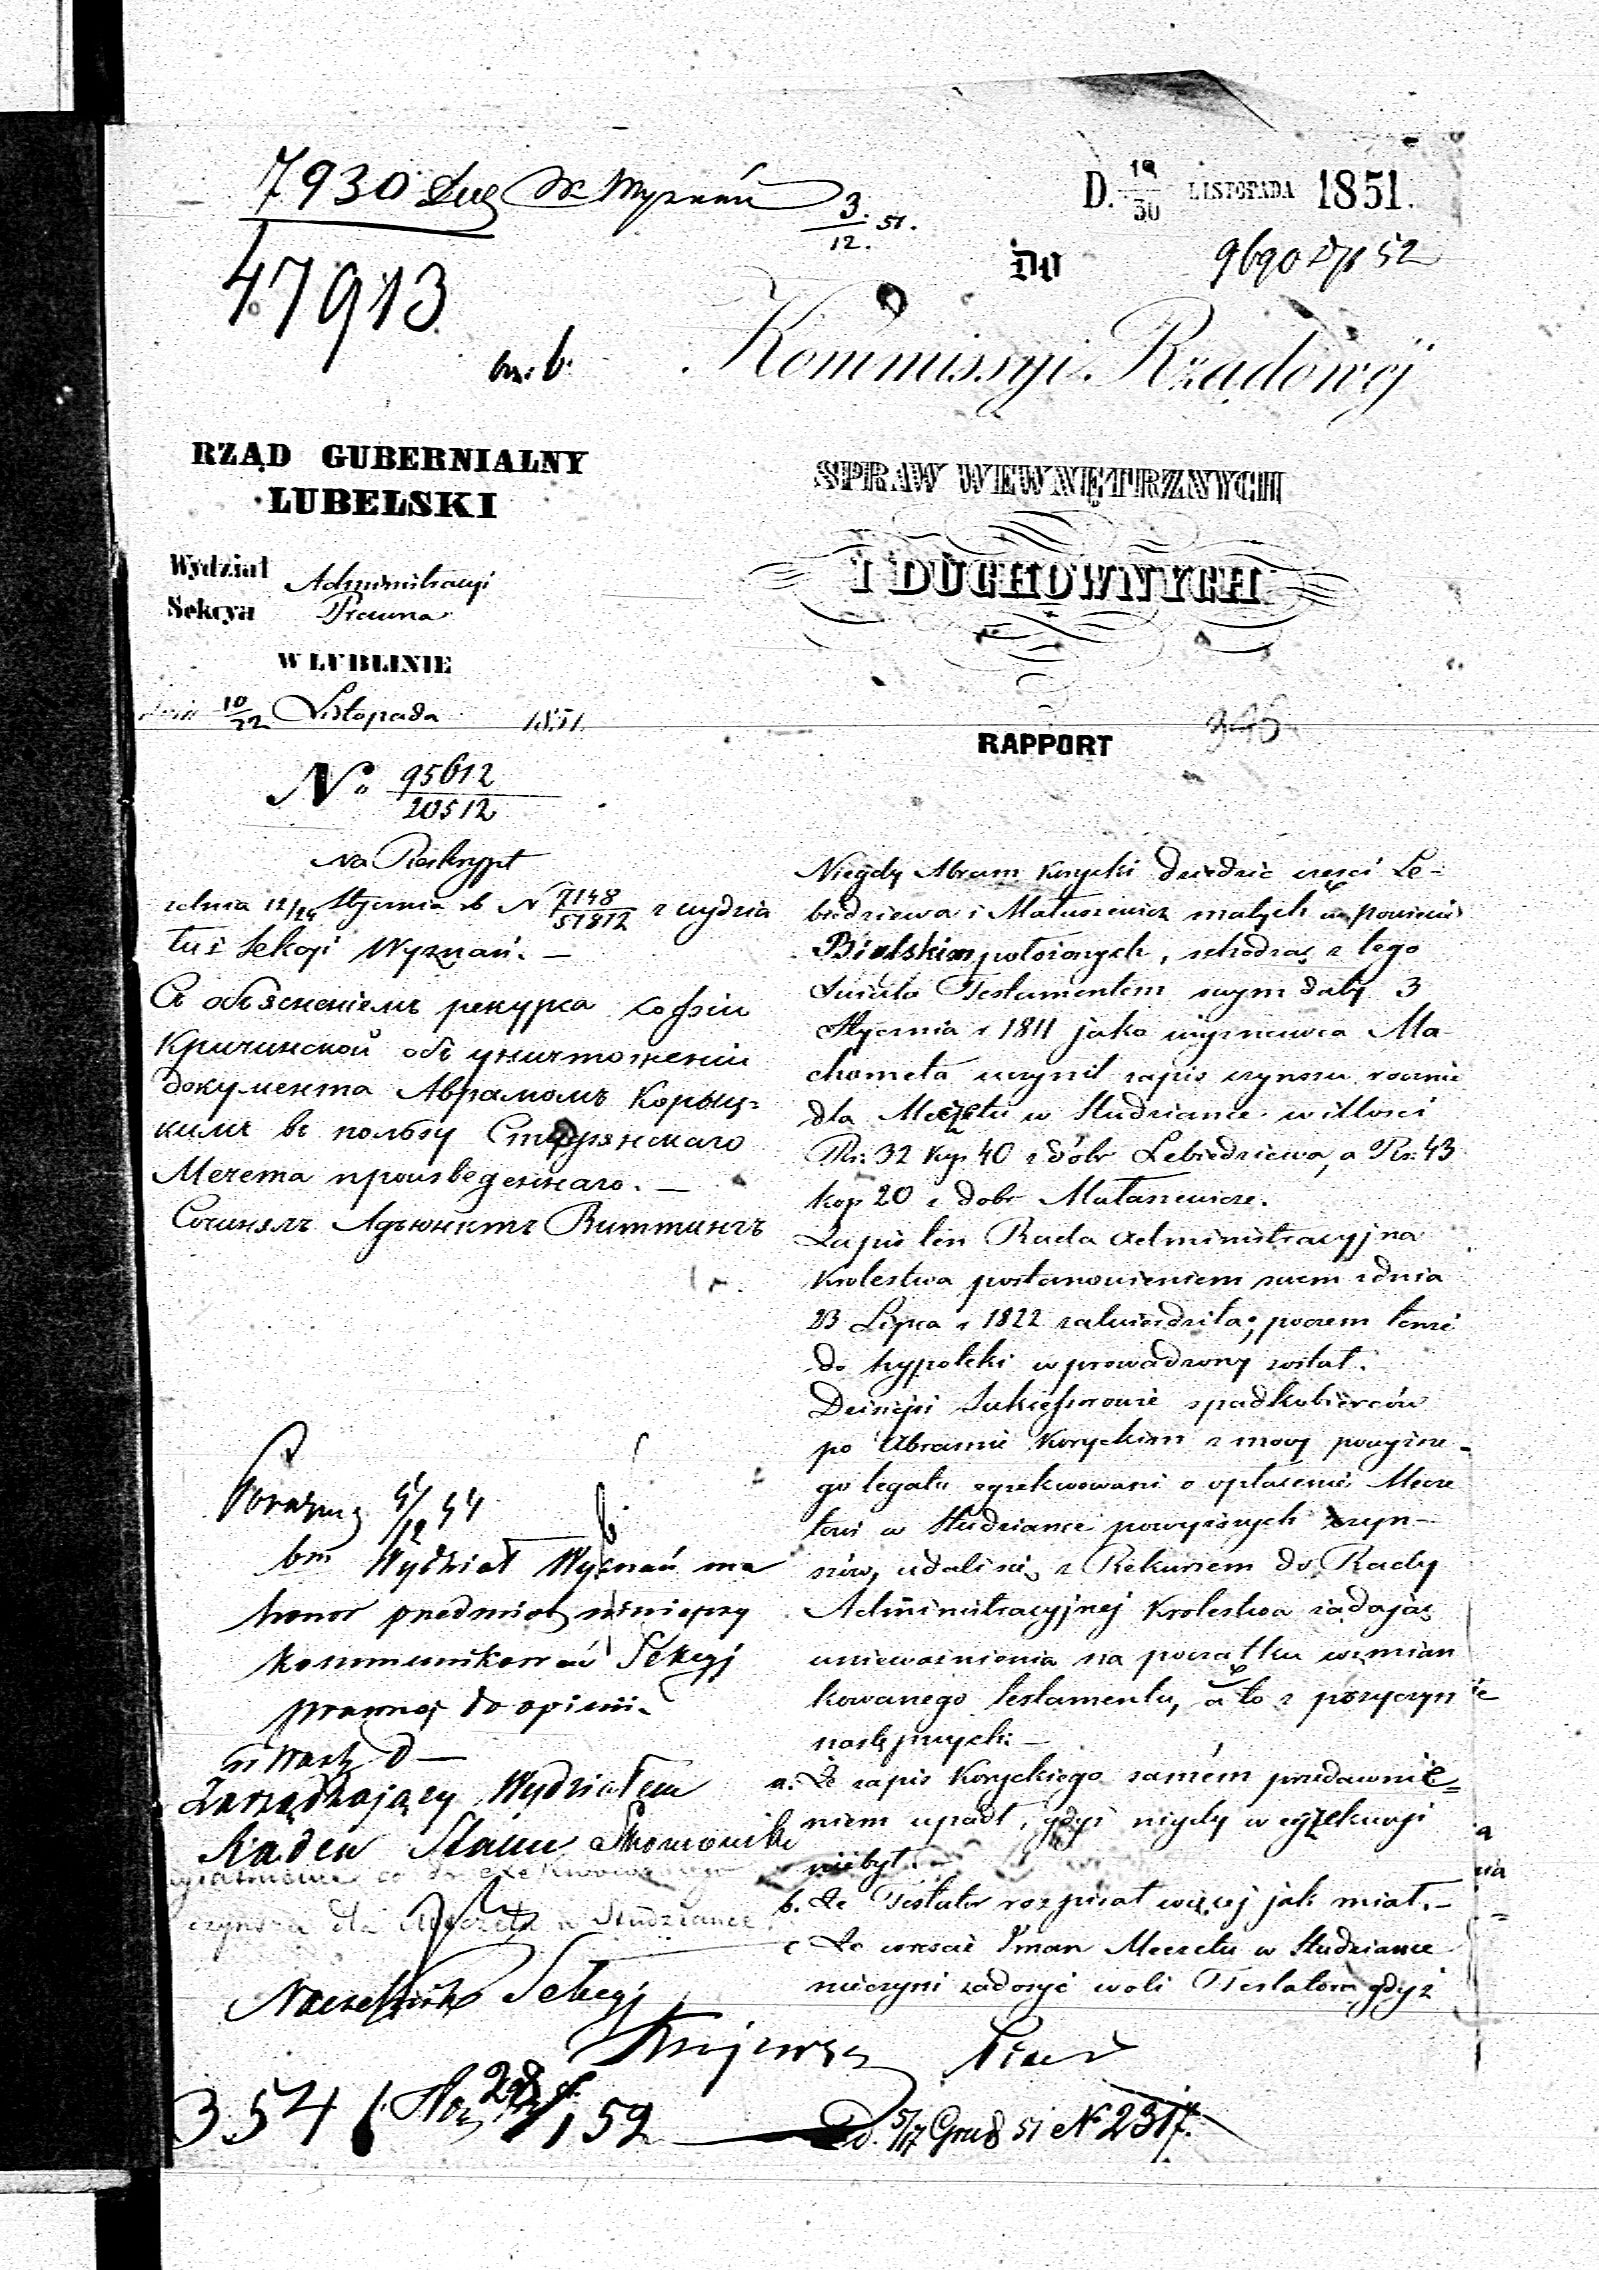 7930 Lub Wyznań 3/12 51.
D. 18/30 LISTOPADA 1851.
47913
DO
9690 52
Kommissyi Rządowéj
RZĄD GUBERNIALNY
LUBELSKI
SPRAW WEWNĘTRZNYCH
I DUCHOWNYCH
Wydział Administracyi
Sekcya Prawna
W LUBLINIE
dnia 10/22 Listopada 1851.
RAPPORT
No. 95612/20512
na Reskrypt
z dnia 12/24 Stycznia rb N 7148/51812 z wydzia
łu i Sekcyi Wyznań. —
Съ объясненіемъ рекурса Софіи
Кричинской объ уничтоженіи
документа Аврамомъ Корыц=
кимъ въ пользу Студзянскаго
Мечета произведеннаго. —
Сочинялъ Адъюнктъ Виттингъ
Niegdy Abram Korycki dziedzic części Le-
biedziewa i Małaszewicz małych w powiecie
Bialskim położonych, schodząc z tego
Świata Testamentem swym daty 3
Stycznia r 1811 jako wyznawca Ma-
chometa uczynił zapis czynszu rocznie
dla Meczetu w Studziance w illości
Rs: 32 kop 40 z dóbr Lebiedziewa, a Rs: 43
kop 20 z dobr Małaszewicze.
Zapis ten Rada Administracyjna
Krolestwa postanowieniem swem z dnia
23 Lipca r 1822 zatwierdziła; poczem tenże
do hypoteki wprowadzony został.
Dzisiejsi Sukcessorowie spadkobierców
po Abramie Koryckim z mocy powyższe-
go legatu exekwowani o opłacenie Mecze
towi w Studziance powyższych czyn-
szów, udali się z Rekursem do Rady
Administracyjnej Krolestwa żądając
unieważnienia na początku wzmian
kowanego testamentu, a to z przyczyn
następnych: —
a. Że zapis Koryckiego samém przedawnie=
niem upadł, gdyż nigdy w egzekucyi
niebył. —
b. Że Testator rozpisał więcej jak miał. —
c Że wreszcie Iman Meczetu w Studziance
nieczyni zadosyć woli Testatora gdyż
Wydział Wyznań ma
honor przedmiot niniejszy
kommunikować Sekcyi
prawnej do opinii.
Zarządzający Wydziałem
Radca Stanu
czynszu dla Meczetu w Studziance
Naczelnik Sekcyi
354 52
D. 5/17 Grud 51 N 2317.